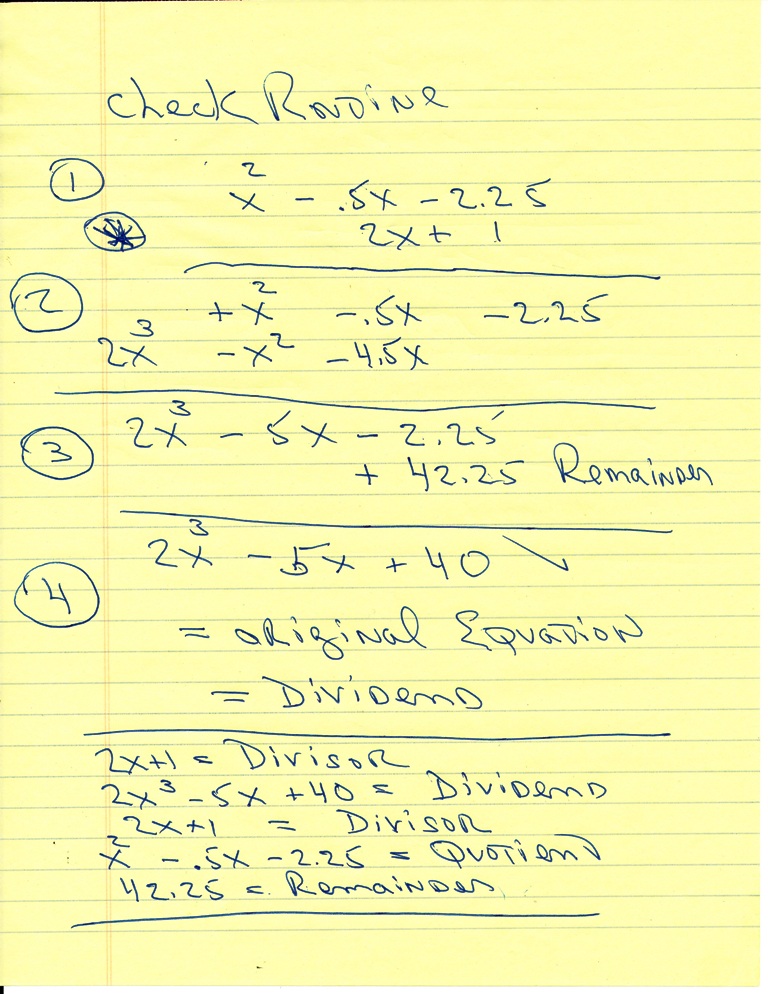 Check Routine
① x² - .5x - 2.25
2x + 1
② +x² -.5x -2.25
2x³ -x² -4.5x
③ 2x³ - 5x - 2.25
+ 42.25 Remainder
2x³ - 5x + 40
④
= original Equation
= Dividend
2x+1 = Divisor
2x³ -5x +40 = Dividend
2x+1 = Divisor
x² -.5x -2.25 = Quotient
42.25 = Remainder